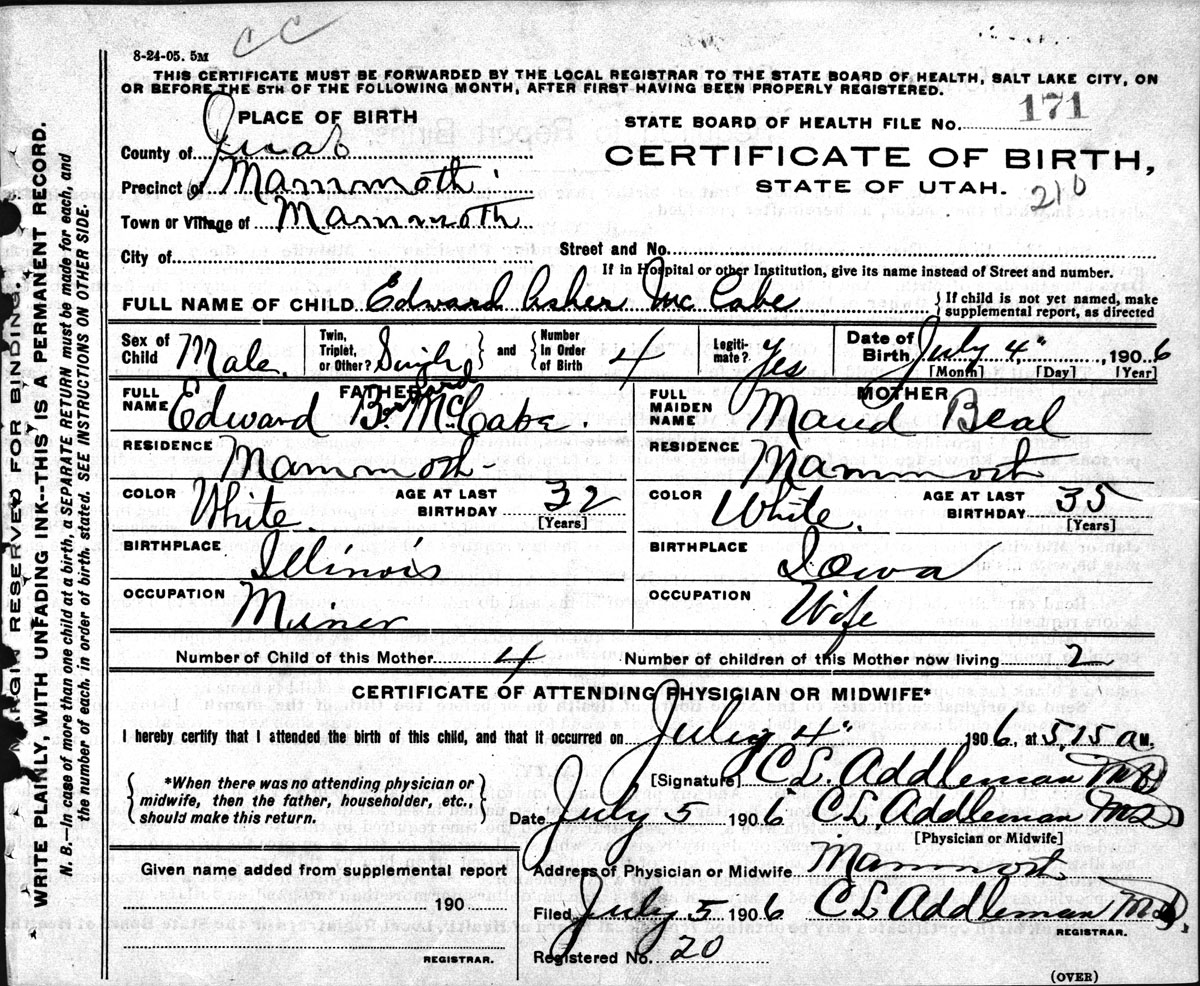 CC
8-24-05. 5M
THIS CERTIFICATE MUST BE FORWARDED BY THE LOCAL REGISTRAR TO THE STATE BOARD OF HEALTH, SALT LAKE CITY, ON
OR BEFORE THE 5TH OF THE FOLLOWING MONTH, AFTER FIRST HAVING BEEN PROPERLY REGISTERED.
PLACE OF BIRTH
County of Juab
Precinct of Mammoth
Town or Village of Mammoth
STATE BOARD OF HEALTH FILE No. 171
CERTIFICATE OF BIRTH,
STATE OF UTAH.
210
City of Street and No.
If in Hospital or other Institution, give its name instead of Street and number.
FULL NAME OF CHILD Edward Asher McCabe { If child is not yet named, make
supplemental report, as directed
Sex of Child Male. Twin, Triplet, or Other? Single } and { Number In Order of Birth 4 Legiti-mate? Yes Date of Birth July 4", 1906
[Month] [Day] [Year]
FATHER
FULL NAME Edward Bernard McCabe.
RESIDENCE Mammoth
COLOR White. AGE AT LAST BIRTHDAY 32 [Years]
BIRTHPLACE Illinois
OCCUPATION Miner
MOTHER
FULL MAIDEN NAME Maud Beal
RESIDENCE Mammoth
COLOR White. AGE AT LAST BIRTHDAY 35 [Years]
BIRTHPLACE Iowa
OCCUPATION Wife
Number of Child of this Mother 4 Number of children of this Mother now living 2
CERTIFICATE OF ATTENDING PHYSICIAN OR MIDWIFE*
I hereby certify that I attended the birth of this child, and that it occurred on July 4" 1906, at 5,15 a M.
{ *When there was no attending physician or
midwife, then the father, householder, etc.,
should make this return. }
[Signature] C L. Addleman MD
Date July 5 1906 C L Addleman MD
[Physician or Midwife]
Address of Physician or Midwife Mammoth
Filed July 5 1906 C L Addleman MD.
REGISTRAR.
Registered No. 20
Given name added from supplemental report
190
REGISTRAR.
(OVER)
MARGIN RESERVED FOR BINDING.
WRITE PLAINLY, WITH UNFADING INK--THIS IS A PERMANENT RECORD.
N. B.--In case of more than one child at a birth, a SEPARATE RETURN must be made for each, and
the number of each, in order of birth, stated. SEE INSTRUCTIONS ON OTHER SIDE.